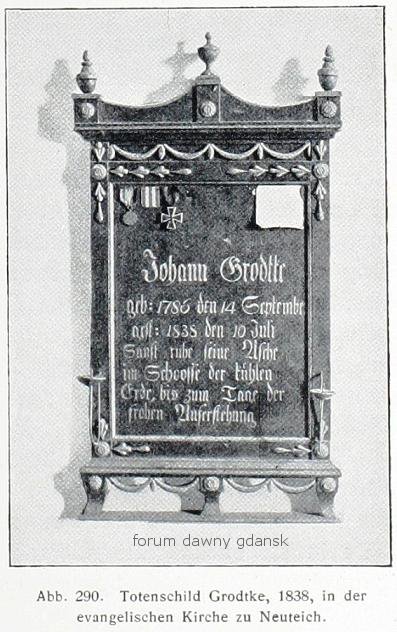 Johann Grodtke
geb: 1786 den 14 Septembe
gest: 1838 den 10 Juli
Sanft ruhe seine Asche
im Schoosse der kühlen
Erde, bis zum Tage der
frohen Auferstehung
forum dawny gdansk
Abb. 290. Totenschild Grodtke, 1838, in der
evangelischen Kirche zu Neuteich.